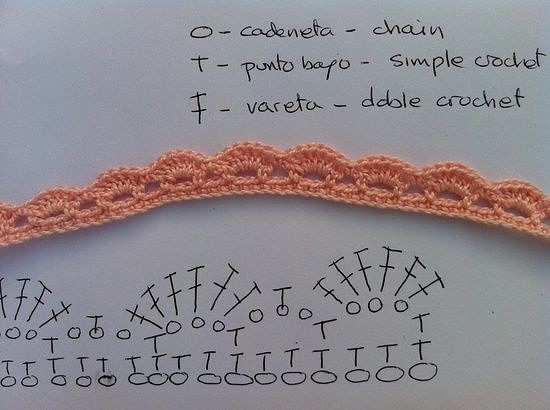 O - cadeneta - chain
T - punto bajo - simple crochet
Ŧ - vareta - doble crochet